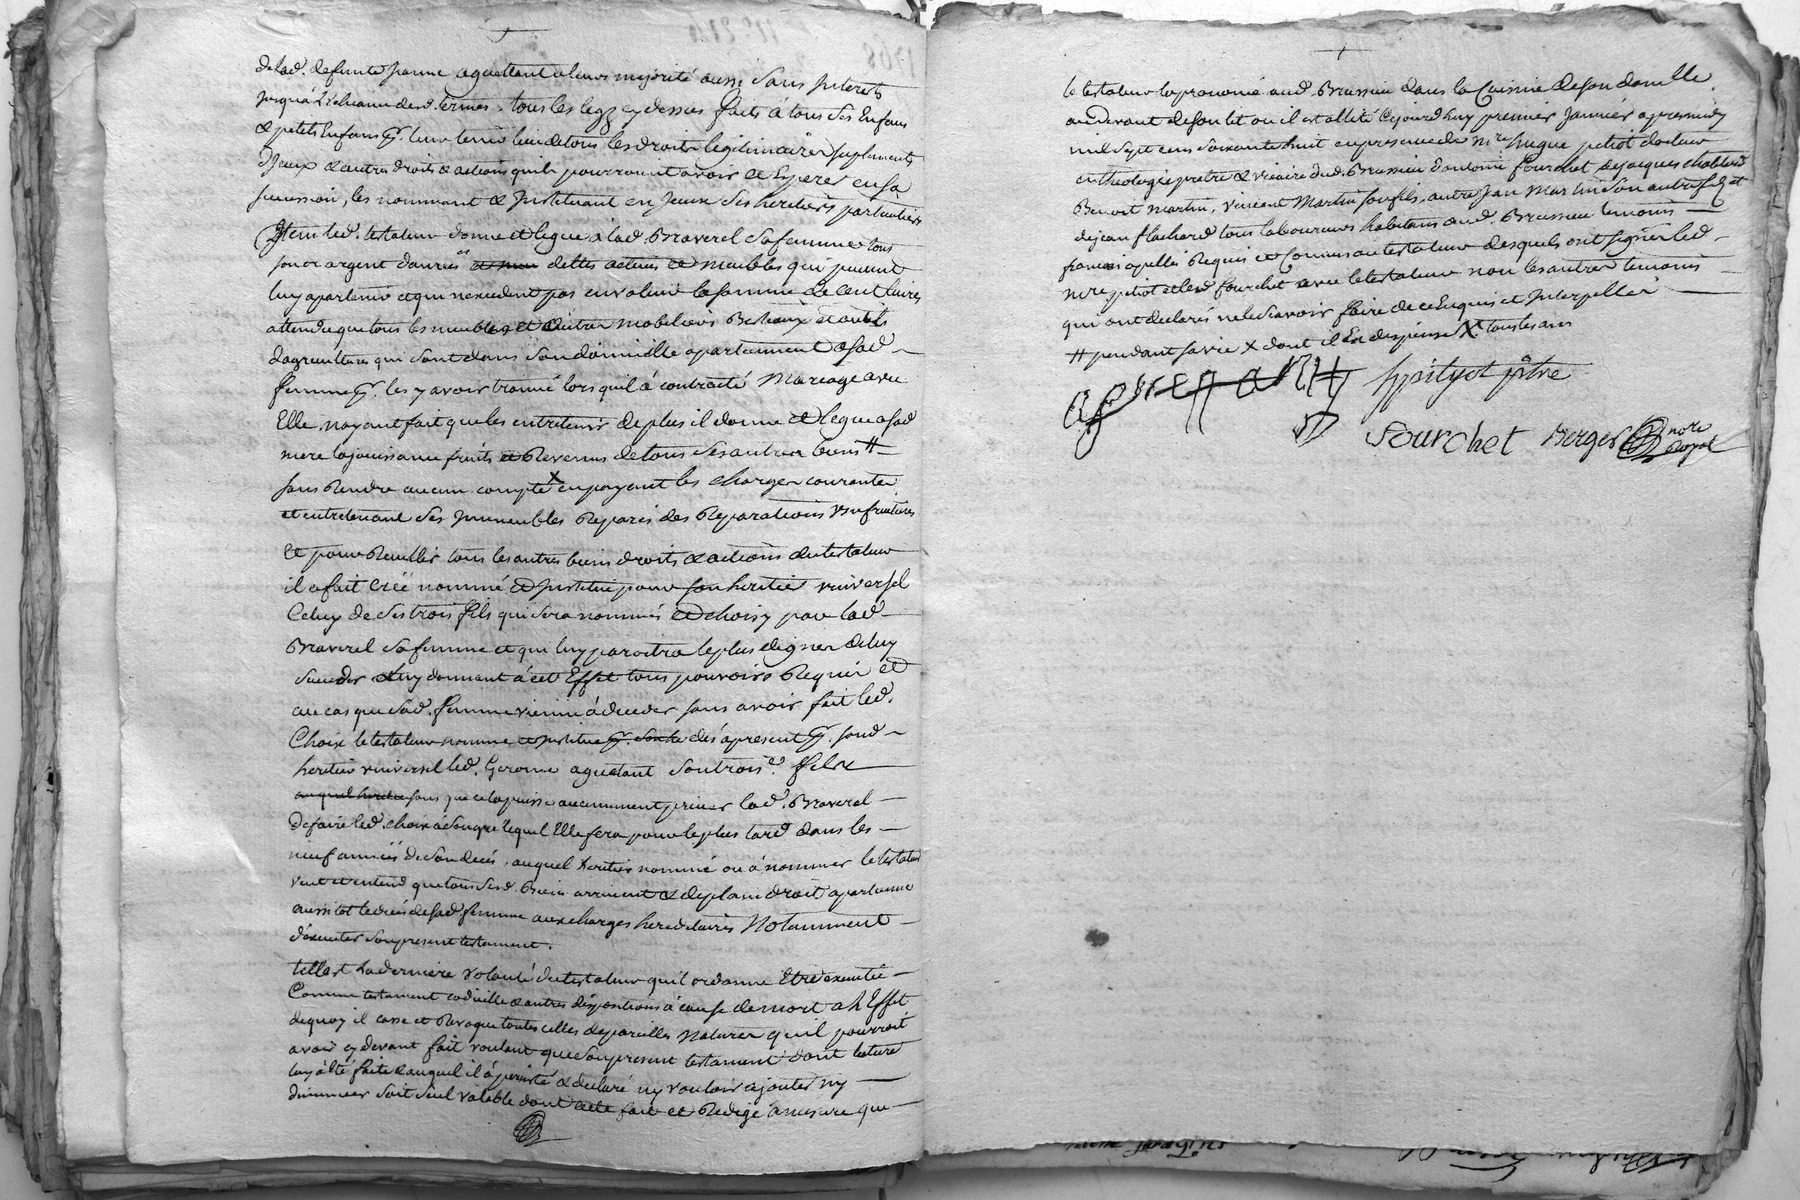 de lad. defunte jeanne aguettant a leurs majorité aussi sans Interets
jusqu'à L'echeance desd. termes. tous les legs cy dessus faits à tous ses Enfans
& petits Enfans pr. leur tenir lieu de tous les droits legitimaires suplements
d'jceux & autres droits & actions quils pourroient avoir & Esperer en sa
succession, les nommant & Instituant en Jceux ses heritiers particuliers
Item led. testateur donne et legue à lad. Braverel sa femme tous
son or argent danrées dettes actives et meubles qui peuvent
luy apartenir et qui n'excedent pas en valeur la somme de cent livres
attendu que tous les meubles et autres mobiliers Bestiaux et outils
dagriculture qui sont dans son domicille apartiennent a sad
femme pr. les y avoir trouvé lorsquil à contracté Mariage avec
Elle nayant fait que les entretenir de plus il donne et legue a sad
mere la jouissance fruits et Revenus de tous ses autres biens #
sans Rendre aucun compte x en payant les charges courantes
et entretenant ses Immeubles Reparés des Reparations Usufruitieres
Et pour Recuillir tous les autres biens droits & actions du testateur
il a fait créé nommé et Institué pour son heritier universel
Celuy de ses trois fils qui sera nommé et choisy par lad
Braverel sa femme et qui luy paroitra le plus digne de luy
succeder luy donnant à cet Effet tous pouvoirs Requis et
au cas que sad. femme vienne à deceder sans avoir fait led.
Choix le testateur nomme et institue pr. dés apresent pr. sond
heritier universel led. Gerome aguettant son trois.e fils
auquel heritier sans que cela puisse aucunement priver lad. Braverel
de faire led. choix à son gré lequel Elle fera pour le plus tard dans les
neuf années de son decés, auquel heritier nommé ou à nommer le testateur
veut et entend que tous sesd. Biens arrivent & de plain droit apartienne
aussitot le decés de sad femme aux charges hereditaires Notamment
d'executer son present testament.
telle est la derniere volonté du testateur qu'il ordonne Etre executée
Comme testament codicille & autres dispositions à cause de mort a L'Effet
dequoy il casse et Revoque toutes celles de pareilles Natures quil pourroit
avoir cy devant fait voulant que son present testament dont lecture
luy a été faite & auquel il à persisté & declaré ny vouloir ajouter ny
diminuer soit seul valable dont acte fait et Redigé à mesure que
le testateur la prononcé aud. Brussieu dans la Cuisine de son domicille
au devant de son lit ou il est allité Cejourd'huy premier Janvier apres midy
mil sept cens soixante huit en presence de mre hugue petiot docteur
en theologie pretre & vicaire dud. Brussieu d'antoine fourchet de jacques chatelard
Benoit Martin, vincent Martin son fils, autre Jean Martin son autre fils et
de jean flachard tous laboureurs habitans aud Brussieu temoins
francois apellés Requis et Connus au testateur desquels ont signés led
mre petiot et led fourchet avec le testateur non les autres temoins
qui ont declarés ne le sçavoir faire de ce Enquis et Interpellés
# pendant sa vie x dont il En dispense x tous les ans
hpetiyot prtre
fourchet Berger nore
Royal